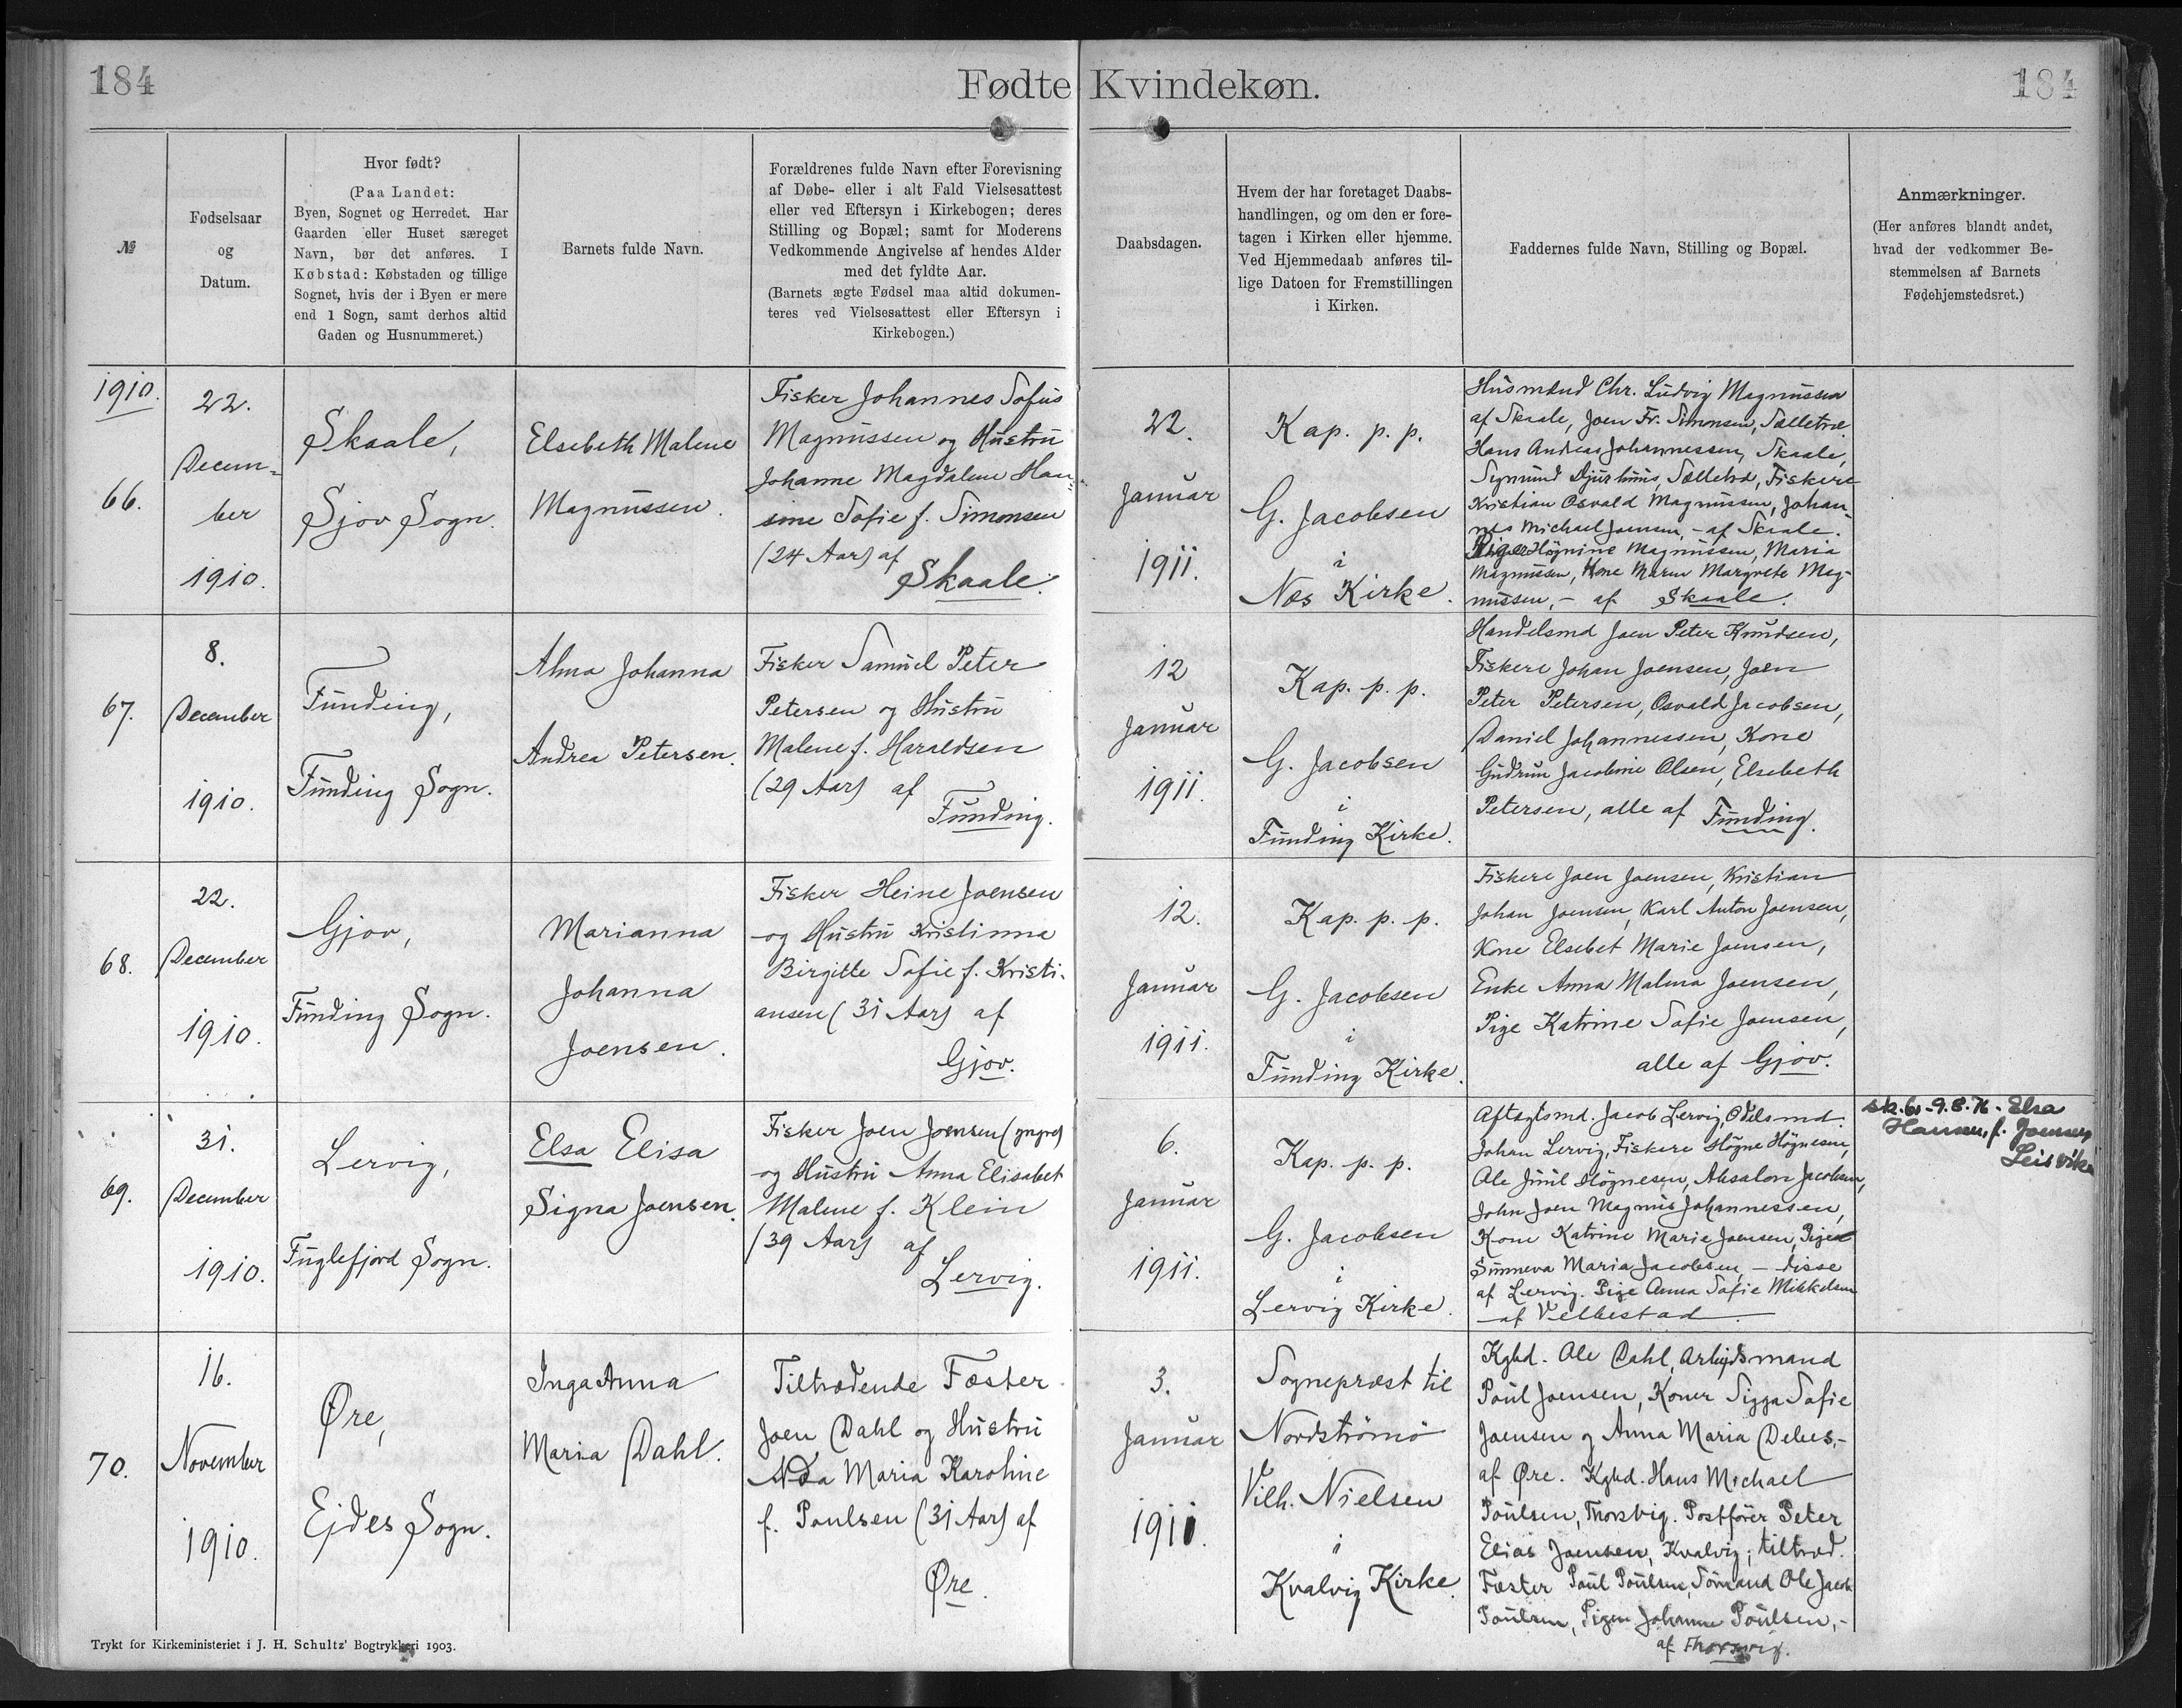 184
Fødte Kvindekøn.
184
№
Fødselsaar
og
Datum.
Hvor født?
(Paa Landet:
Byen, Sognet og Herredet. Har
Gaarden eller Huset særeget
Navn, bør det anføres. I
Købstad: Købstaden og tillige
Sognet, hvis der i Byen er mere
end 1 Sogn, samt derhos altid
Gaden og Husnummeret.)
Barnets fulde Navn.
Forældrenes fulde Navn efter Forevisning
af Døbe- eller i alt Fald Vielsesattest
eller ved Eftersyn i Kirkebogen; deres
Stilling og Bopæl; samt for Moderens
Vedkommende Angivelse af hendes Alder
med det fyldte Aar.
(Barnets ægte Fødsel maa altid dokumen-
teres ved Vielsesattest eller Eftersyn i
Kirkebogen.)
Daabsdagen.
Hvem der har foretaget Daabs-
handlingen, og om den er fore-
tagen i Kirken eller hjemme.
Ved Hjemmedaab anføres til-
lige Datoen for Fremstillingen
i Kirken.
Faddernes fulde Navn, Stilling og Bopæl.
Anmærkninger.
(Her anføres blandt andet,
hvad der vedkommer Be-
stemmelsen af Barnets
Fødehjemstedsret.)
1910.
66.
22.
Decem-
ber
1910.
Skaale,
Sjov Sogn.
Elsebeth Malene
Magnussen.
Fisker Johannes Sofus
Magnussen og Hustru
Johanne Magdalene Han-
sine Sofie f. Simonsen
(24 Aar) af
Skaale.
22.
Januar
1911.
Kap. p. p.
G. Jacobsen
i
Næs Kirke.
Husmand Chr. Ludvig Magnussen
af Skaale, Joen Fr. Simonsen, Selletræ.
Hans Andreas Johannessen, Skaale,
Sigmund Djurhuus, Selletræ, Fiskere
Kristian Osvald Magnussen, Johan-
nes Michael Joensen, - af Skaale.
Piger Høgnine Magnussen, Maria
Magnussen, Kone Maren Margrete Mag-
nussen, - af Skaale.
67.
8.
December
1910.
Funding,
Funding Sogn.
Alma Johanna
Andrea Petersen.
Fisker Samuel Peter
Petersen og Hustru
Malene f. Haraldsen
(29 Aar) af
Funding.
12
Januar
1911.
Kap. p. p.
G. Jacobsen
i
Funding Kirke.
Handelsmd Joen Peter Knudsen,
Fiskere Johan Joensen, Joen
Peter Petersen, Osvald Jacobsen,
Daniel Johannessen, Kone
Gudrun Jacobine Olsen, Elsebeth
Petersen, alle af Funding.
68.
22.
December
1910.
Gjov,
Funding Sogn.
Marianna
Johanna
Joensen.
Fisker Heine Joensen
og Hustru Kristinna
Birgitte Sofie f. Kristi-
ansen (31 Aar) af
Gjov.
12.
Januar
1911.
Kap. p. p.
G. Jacobsen
i
Funding Kirke.
Fiskere Joen Joensen, Kristian
Johan Joensen, Karl Anton Joensen,
Kone Elsebet Marie Joensen,
Enke Anna Malena Joensen,
Pige Katrine Sofie Joensen,
alle af Gjov.
69.
31.
December
1910.
Lervig,
Fuglefjord Sogn.
Elsa Elisa
Signa Joensen.
Fisker Joen Joensen (yngre)
og Hustru Anna Elisabet
Malene f. Klein
(39 Aar) af
Lervig.
6.
Januar
1911.
Kap. p. p.
G. Jacobsen
i
Lervig Kirke.
Aftægtsmd. Jacob Lervig, Odelsmd.
Johan Lervig, Fiskere Høgne Høgnesen,
Ole Jimil Høgnesen, Absalon Jacobsen,
John Joen Magnus Johannessen,
Kone Katrine Marie Joensen, Pige
Sunneva Maria Jacobsen, - disse
af Lervig. Pige Anna Sofie Mikkelsen
af Velbestad.
9.8.76. Elsa
Hansen, f. Joensen
Leirvik
70.
16.
November
1910.
Øre,
Ejdes Sogn.
Inga Anna
Maria Dahl.
Tiltrædende Fæster
Joen Dahl og Hustru
Ada Maria Karoline
f. Poulsen (31 Aar) af
Øre.
3.
Januar
1911.
Sognepræst til
Nordstrømø
Vilh. Nielsen
i
Kvalvig Kirke.
Kgbd. Ole Dahl, Arbejdsmand
Poul Joensen, Koner Sigga Sofie
Joensen og Anna Maria Debes, -
af Øre. Kgbd. Hans Michael
Poulsen, Thorsvig. Postfører Peter
Elias Joensen, Kvalvig; tiltræd.
Fæster Poul Poulsen, Sømand Ole Jacob
Poulsen, Pigen Johanne Poulsen, -
af Thorsvig.
Trykt for Kirkeministeriet i J. H. Schultz' Bogtrykkeri 1903.